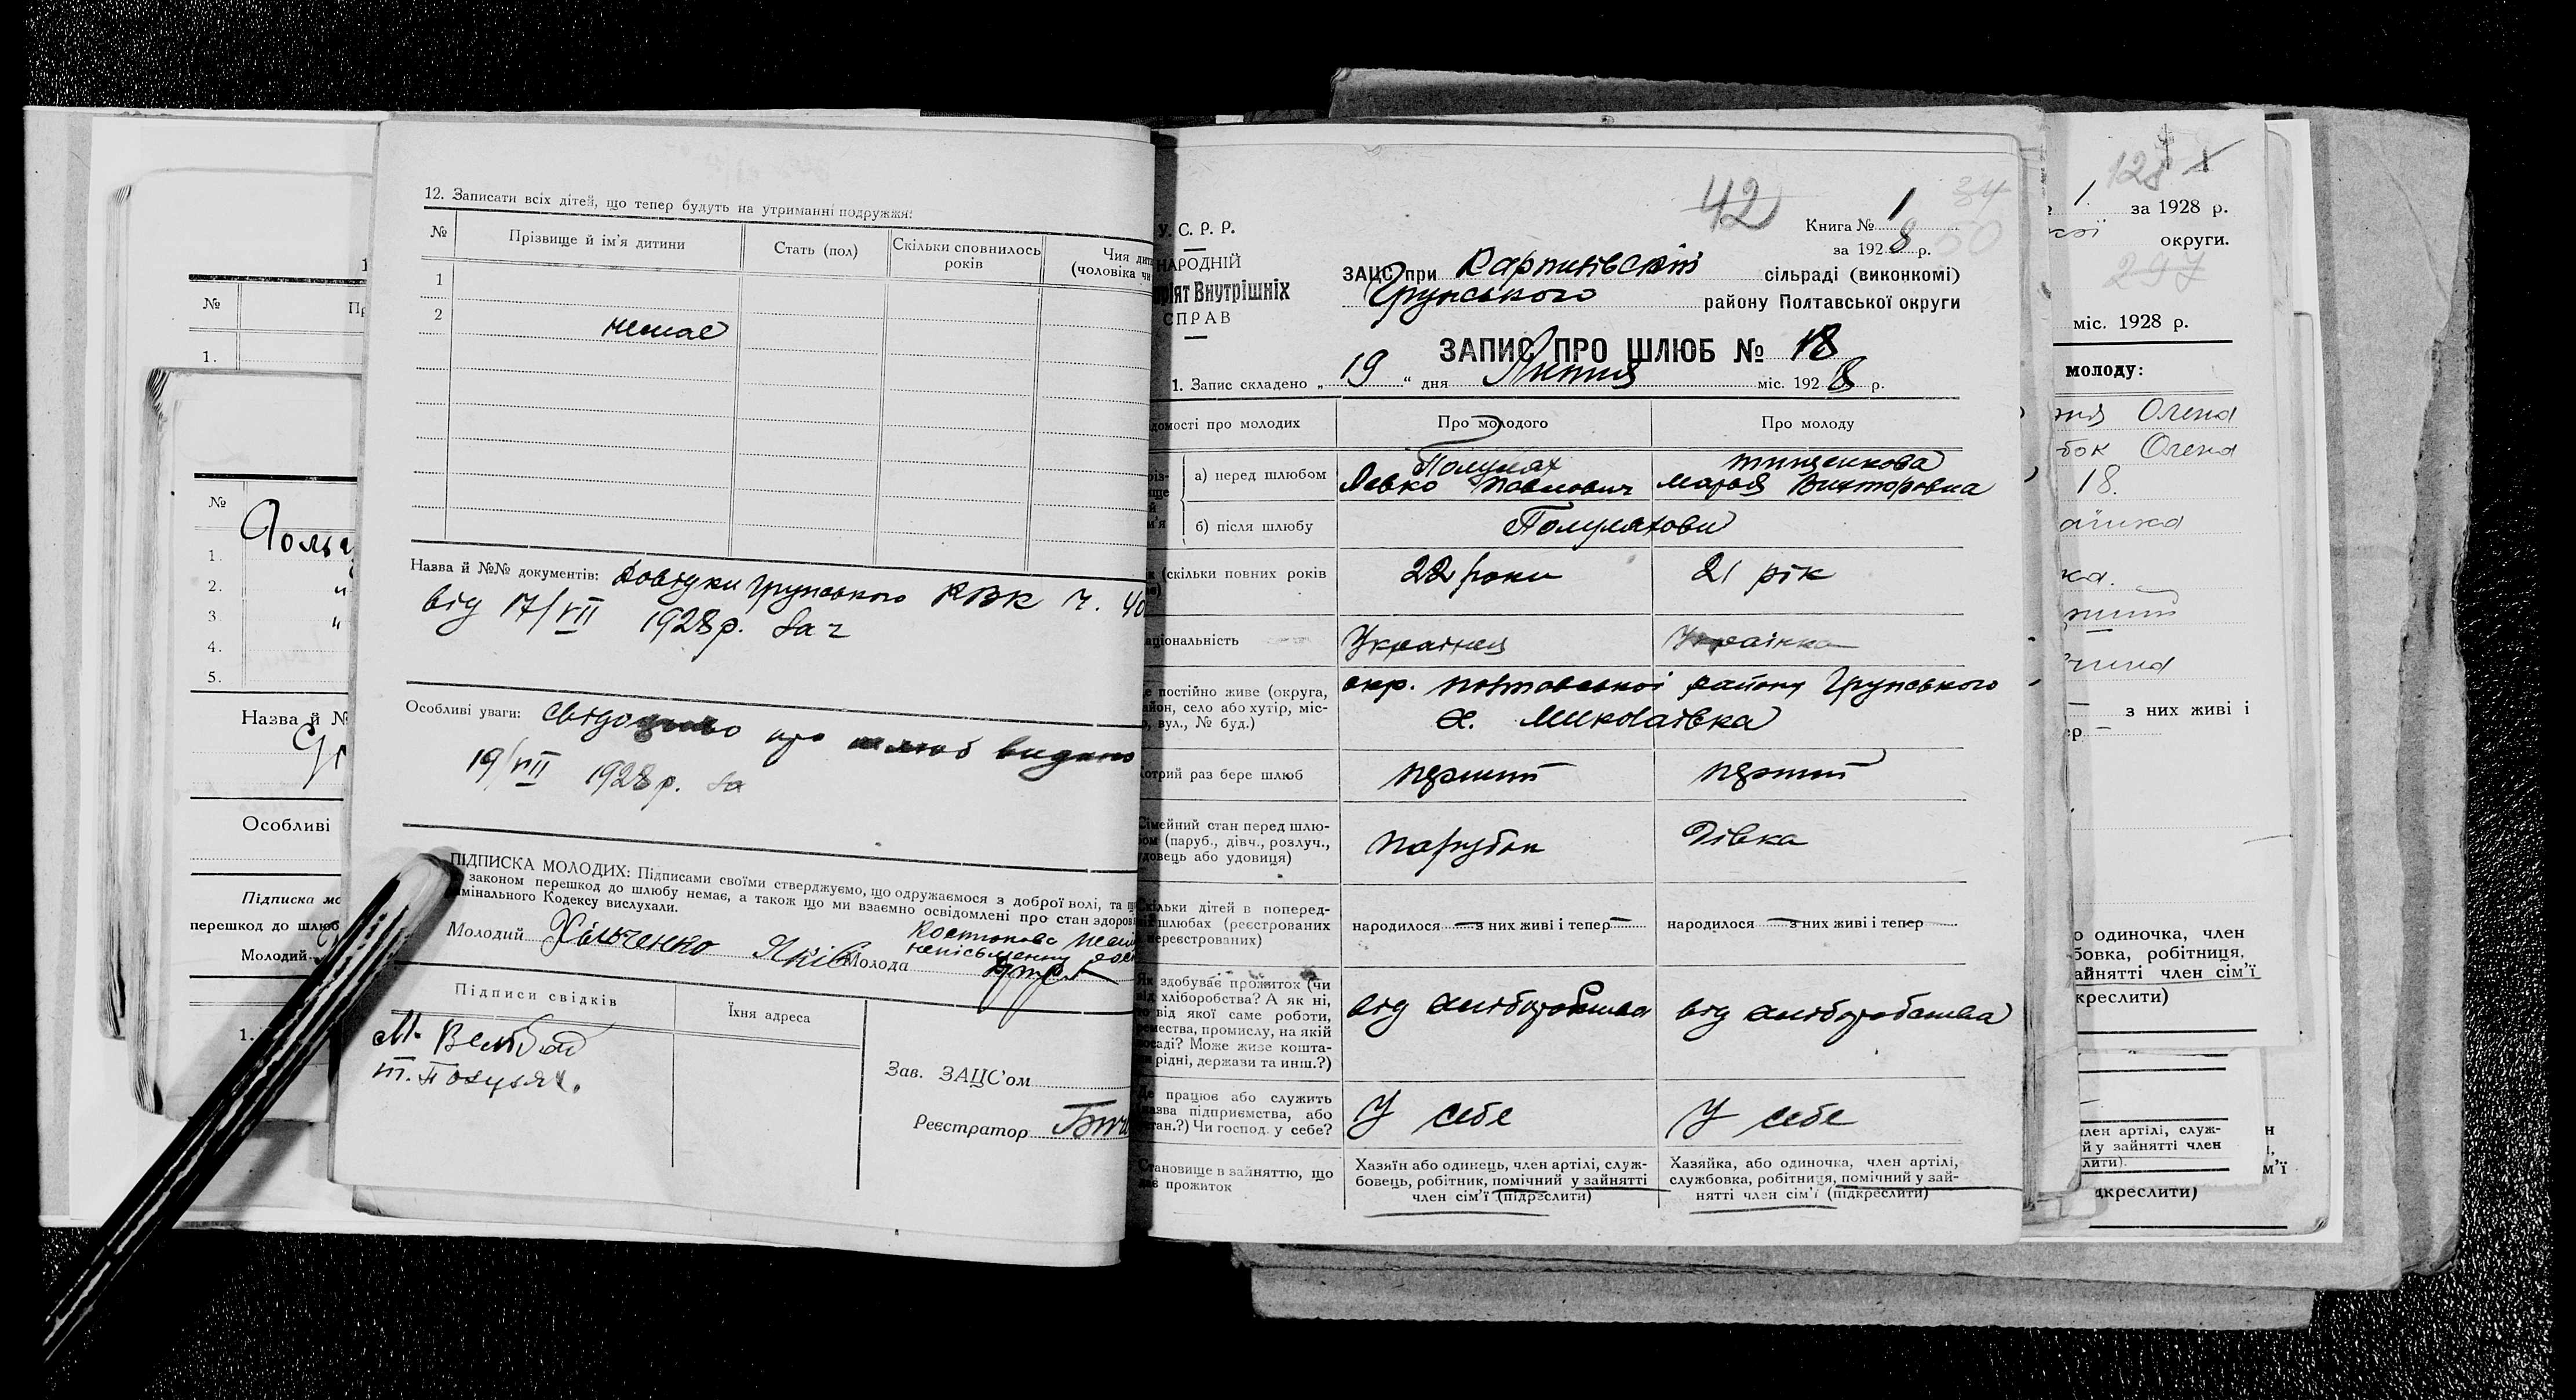 12. Записати всіх дітей, що тепер будуть на утриманні подружжя:
№ Прізвище й ім'я дитини Стать (пол) Скільки сповнилось років Чия дит (чоловіка чи
1
2
немає
Назва й №№ документів: Довідки Грунського РВК ч. 40
від 17/VII 1928 р.
Особливі уваги: свідоцтво про шлюб видано
19/VII 1928 р.
ПІДПИСКА МОЛОДИХ: Підписами своїми стверджуємо, що одружаємося з доброї волі, та
законом перешкод до шлюбу немає, а також що ми взаємно освідомлені про стан здоров
мінального Кодексу вислухали.
Молодий Хільченко Яків Молода неписьменну
Підписи свідків Їхня адреса
Зав. ЗАЦС'ом
Реєстратор
№
1.
№
1.
2. "
3 "
4.
5.
Назва й №
Особливі
Підписка мо
перешкод до шлюб
Молодий
1.
42
34
50
У. С. Р. Р.
НАРОДНІЙ
ріят Внутрішніх
СПРАВ
Книга № 1
за 1928 р.
ЗАЦС при Карпинівській сільраді (виконкомі)
Грунського району Полтавської округи
ЗАПИС ПРО ШЛЮБ № 18
1. Запис складено „ 19 “ дня Липня міс. 1928 р.
домості про молодих Про молодого Про молоду
а) перед шлюбом Полулях Левко Павлович Тищенкова Марія Вікторовна
б) після шлюбу Полуляхови
(скільки повних років 22 роки 21 рік
аціональність Українец Українка
е постійно живе (округа,
айон, село або хутір, міс-
о, вул., № буд.)
окр. Полтавської району Грунського
х. Миколаівка
отрий раз бере шлюб перший перший
Сімейний стан перед шлю-
бом (паруб., дівч., розлуч.,
удовець або удовиця)
парубок Дівка
Скільки дітей в поперед-
ніх шлюбах (реєстрованих
нереєстрованих)
народилося — з них живі і тепер — народилося — з них живі і тепер —
Як здобуває прожиток (чи
від хліборобства? А як ні,
то від якої саме роботи,
ремества, промислу, на якій
посаді? Може живе кошта-
рідні, держави та инш.?)
від хліборобства від хліборобства
Де працює або служить
назва підприємства, або
стан.?) Чи господ. у себе?
У себе У себе
Становище в зайняттю, що
дає прожиток
Хазяїн або одинець, член артілі, служ-
бовець, робітник, помічний у зайнятті
член сім'ї (підреслити)
Хазяйка, або одиночка, член артілі,
службовка, робітниця, помічний у зай-
нятті член сім'ї (підкреслити)
1. за 1928 р.
округи.
297
міс. 1928 р.
молоду:
Олена
Олена
18.
з них живі і
о одиночка, член
бовка, робітниця,
айнятті член сім'ї
креслити)
член артілі, служ-
й у зайнятті член
лити)
дкреслити)